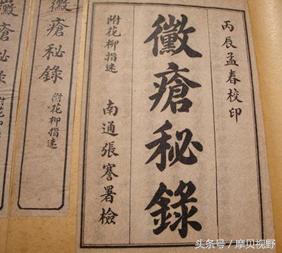 丙辰孟春校印
黴瘡秘錄
附花柳指迷
南通張謇署檢
黴瘡秘錄
附花柳指迷
头条号／摩贝视野